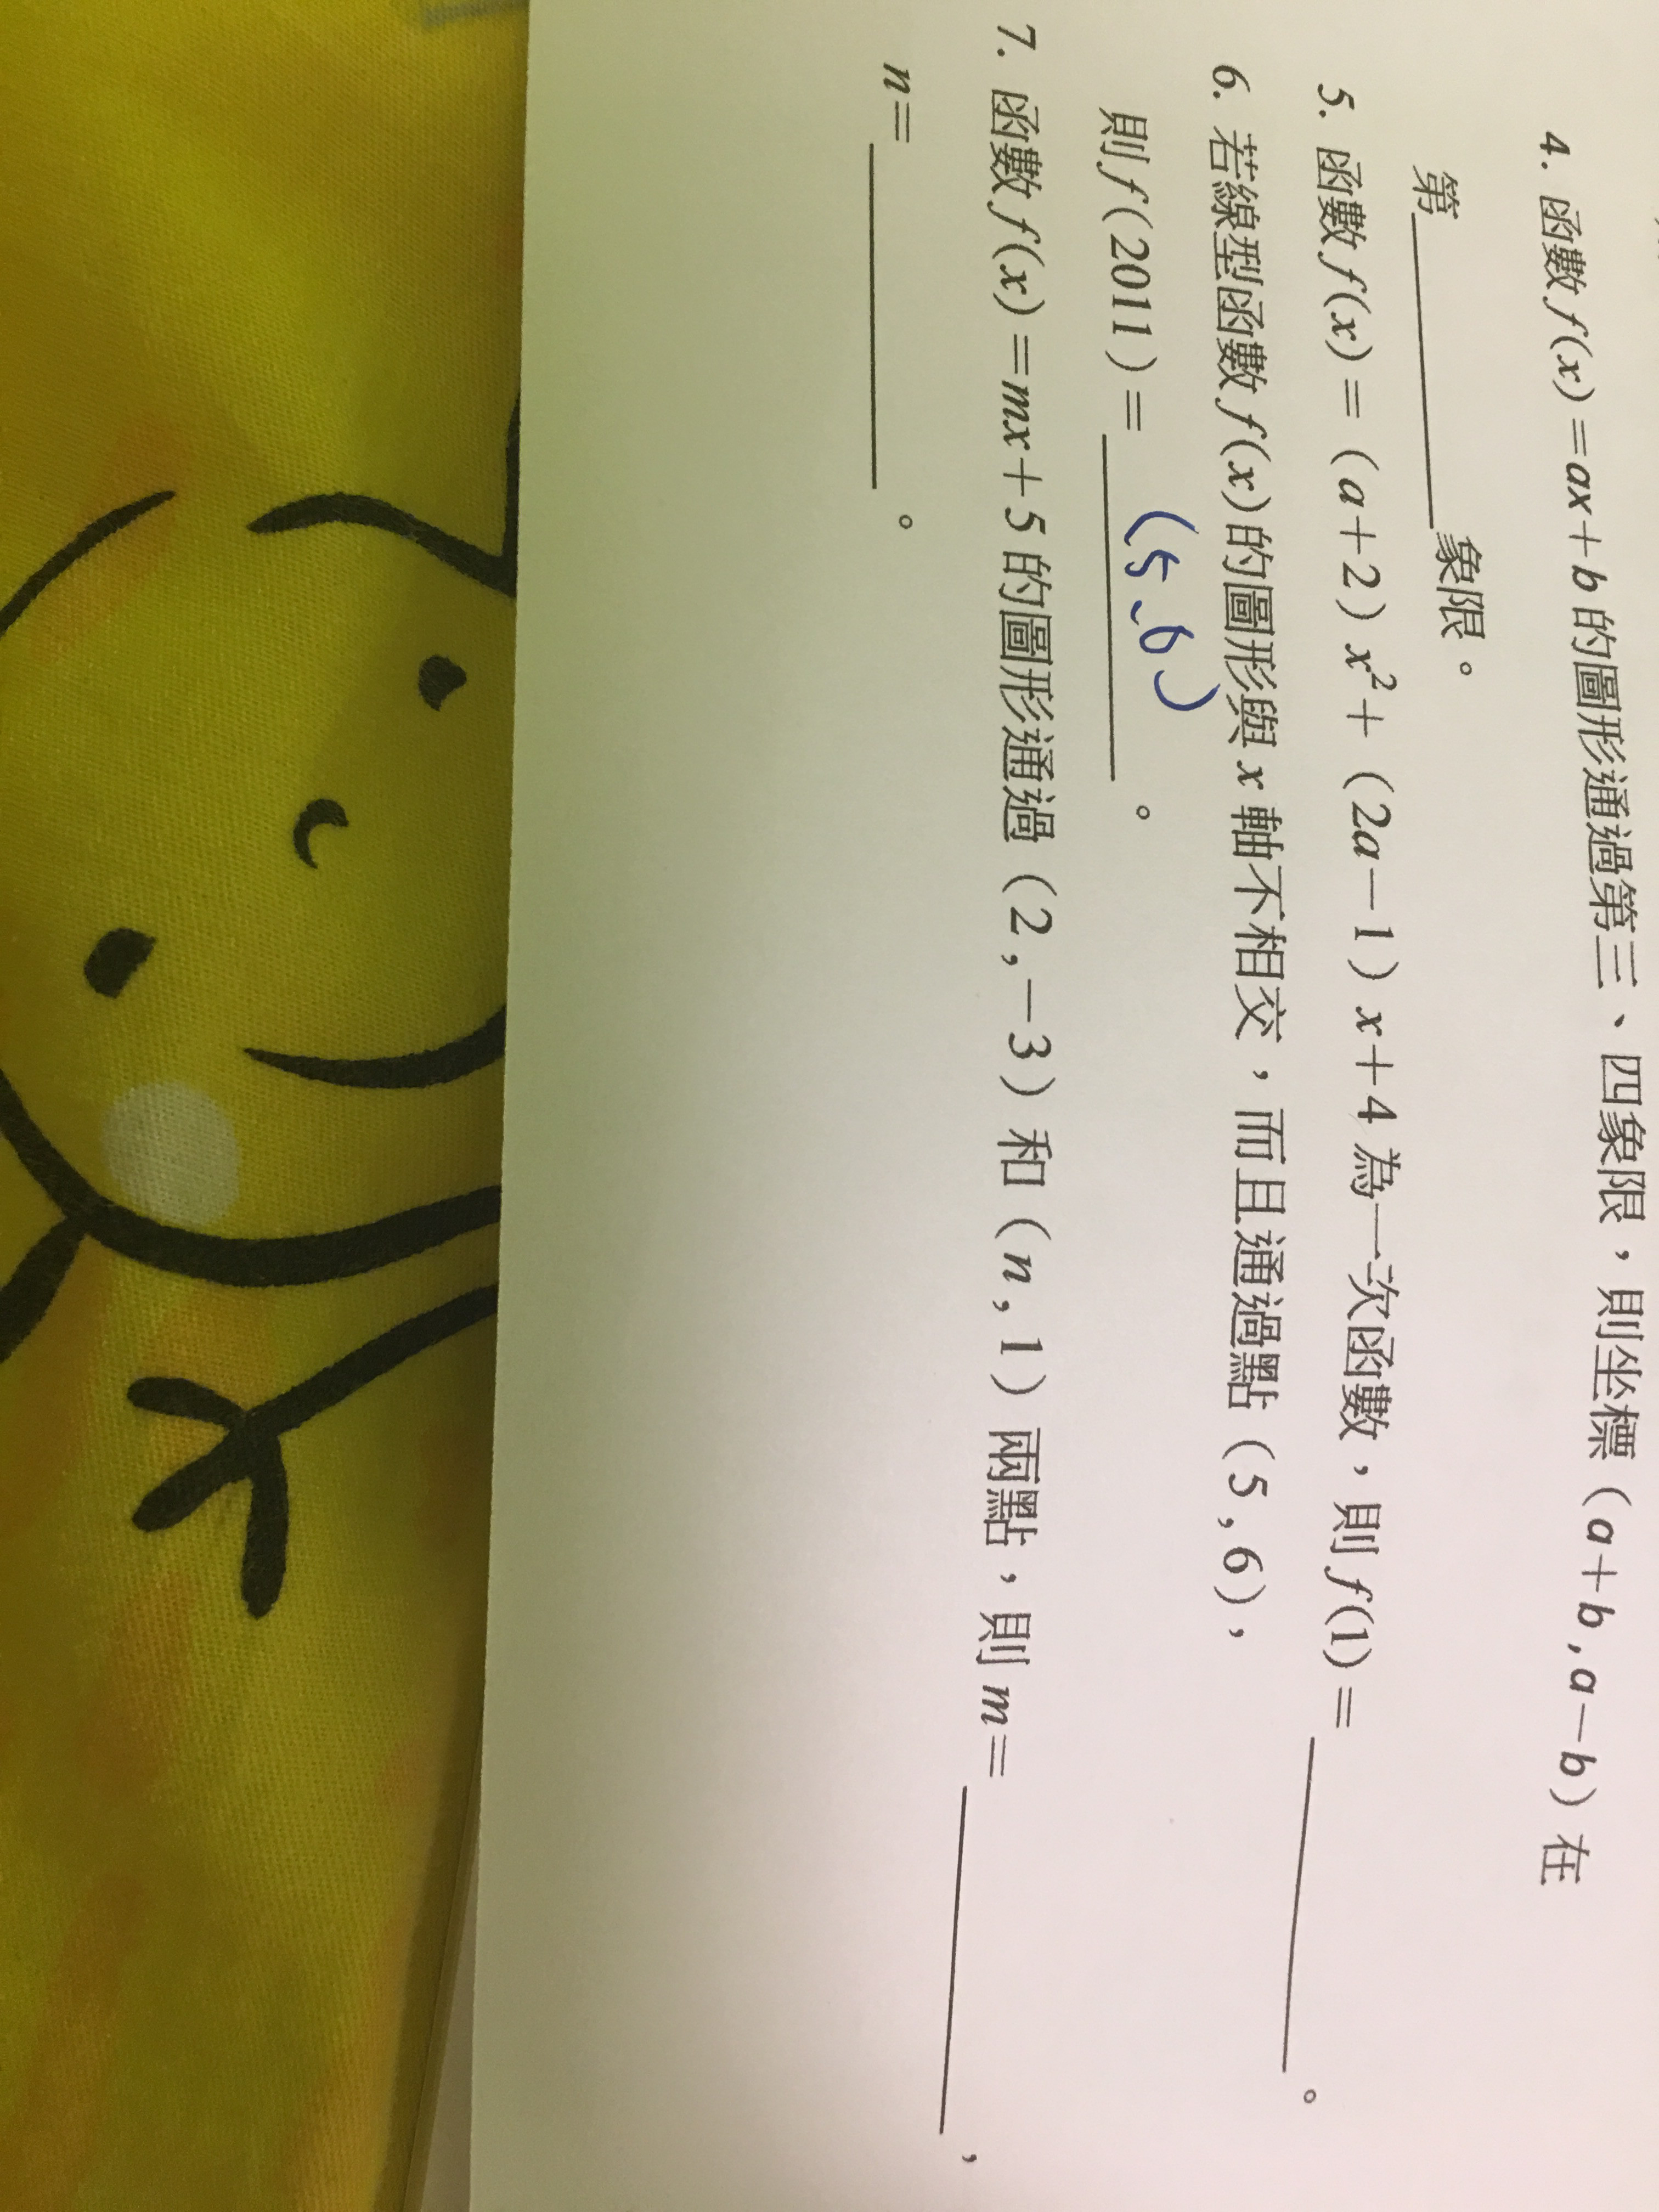 4. 函數 f(x)=ax+b 的圖形通過第三、四象限,則坐標(a+b,a-b)在
第________象限。
5. 函數 f(x)=(a+2)x²+(2a-1)x+4 為一次函數,則 f(1)=________。
6. 若線型函數 f(x)的圖形與 x 軸不相交,而且通過點(5,6),
則 f(2011)=________。
(5、6)
7. 函數 f(x)=mx+5 的圖形通過(2,-3)和(n,1)兩點,則 m=________,
n=________。